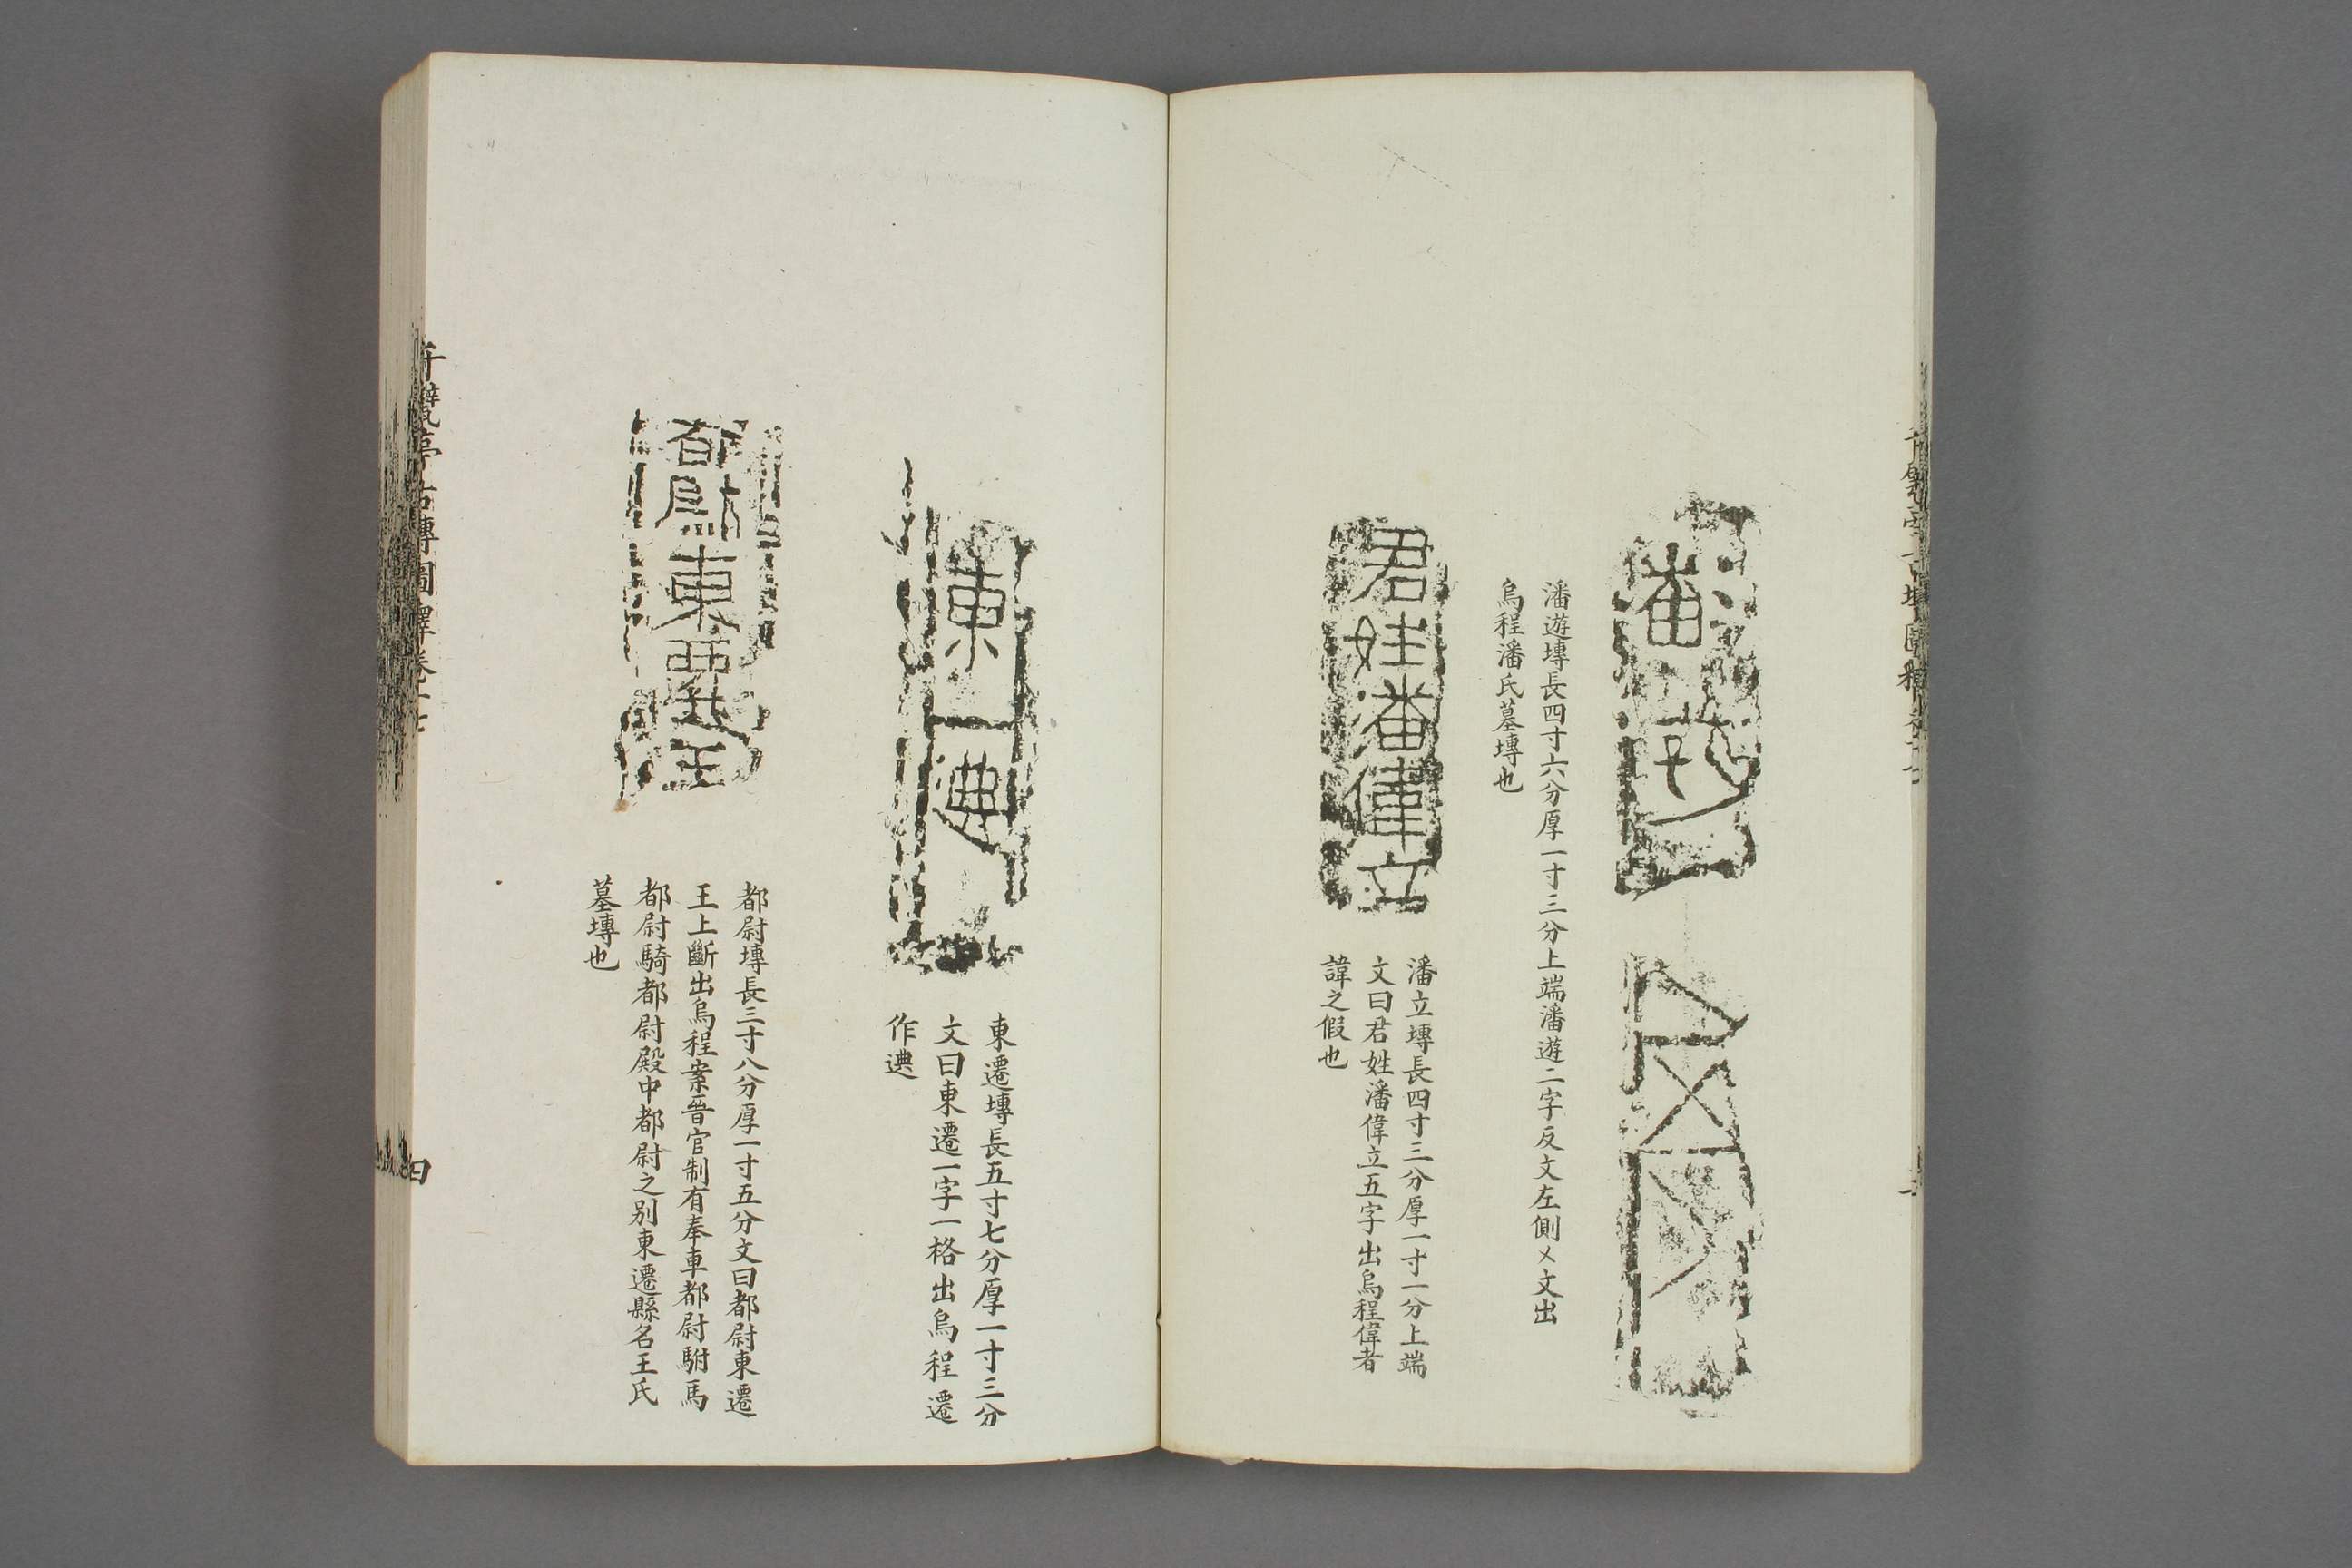 潘遊塼長四寸六分厚一寸三分上端潘遊二字反文左側㐅文出
烏程潘氏墓塼也
君姓潘偉立
潘立塼長四寸三分厚一寸一分上端
文曰君姓潘偉立五字出烏程偉者
諱之假也
東
東遷塼長五寸七分厚一寸三分
文曰東遷一字一格出烏程遷
作䙴
都尉東
王
都尉塼長三寸八分厚一寸五分文曰都尉東遷
王上斷出烏程案晉官制有奉車都尉駙馬
都尉騎都尉殿中都尉之別東遷縣名王氏
墓塼也
千甓亭古塼圖釋卷十七
四